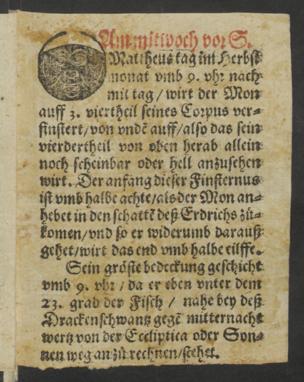 Am mitwoch vor S.
Mattheus tag im Herbst
monat vmb 9. vhr nach
mittag / wirt der Mon
auff 3. viertheil seines Corpus ver-
finstert / von vndẽ auff / also das sein
vierdertheil von oben herab allein
noch scheinbar oder hell anzusehen
wirt. Der anfang dieser Finsternus
ist vmb halbe achte / als der Mon an-
hebet in den schattẽ deß Erdrichs zů-
komen / vnd so er widerumb darauß
gehet / wirt das end vmb halbe eilffe.
Sein gröste bedeckung geschicht
vmb 9. vhr / da er eben vnter dem
23. grad der Fisch / nahe bey deß
Drackenschwantz gegẽ mitternacht
wertz von der Eccliptica oder Son-
nen weg an zů rechnen / stehet.